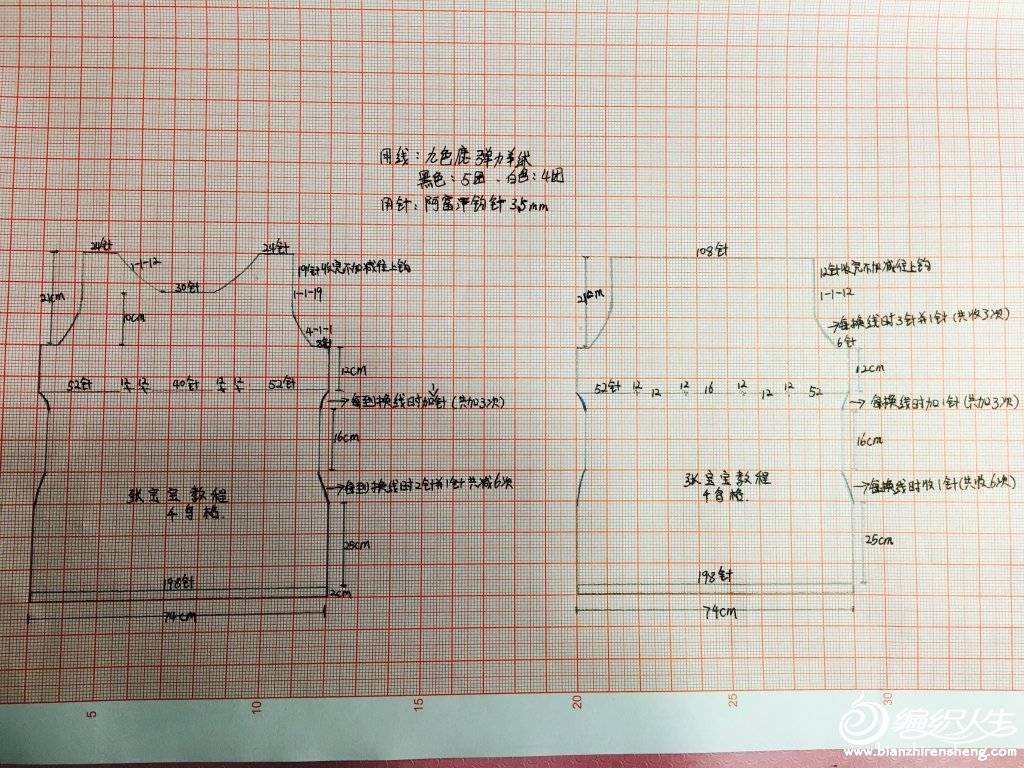 用线：九色鹿弹力羊绒
黑色：5团、白色：4团
用针：阿富汗钩针 3.5mm
24针
24针
1-1-12
30针
21cm
10cm
19针收完不加减往上钩
1-1-19
4-1-1
12cm
52针 12 12 40针 12 12 52针
→每到换线时加1针(共加3次)
16cm
→每到换线时2针并1针 共减6次
张宝宝教程
千鸟格.
25cm
198针
2cm
74cm
108针
12针收完不加减往上钩
1-1-12
→每换线时3针并1针(共收3次)
6针
12cm
52针 12 12 12 16 12 12 12 52
→每换线时加1针(共加3次)
16cm
→每换线时收1针(共收6次)
张宝宝教程
千鸟格.
25cm
198针
74cm
5 10 15 20 25 30
编织人生
www.bianzhirensheng.com